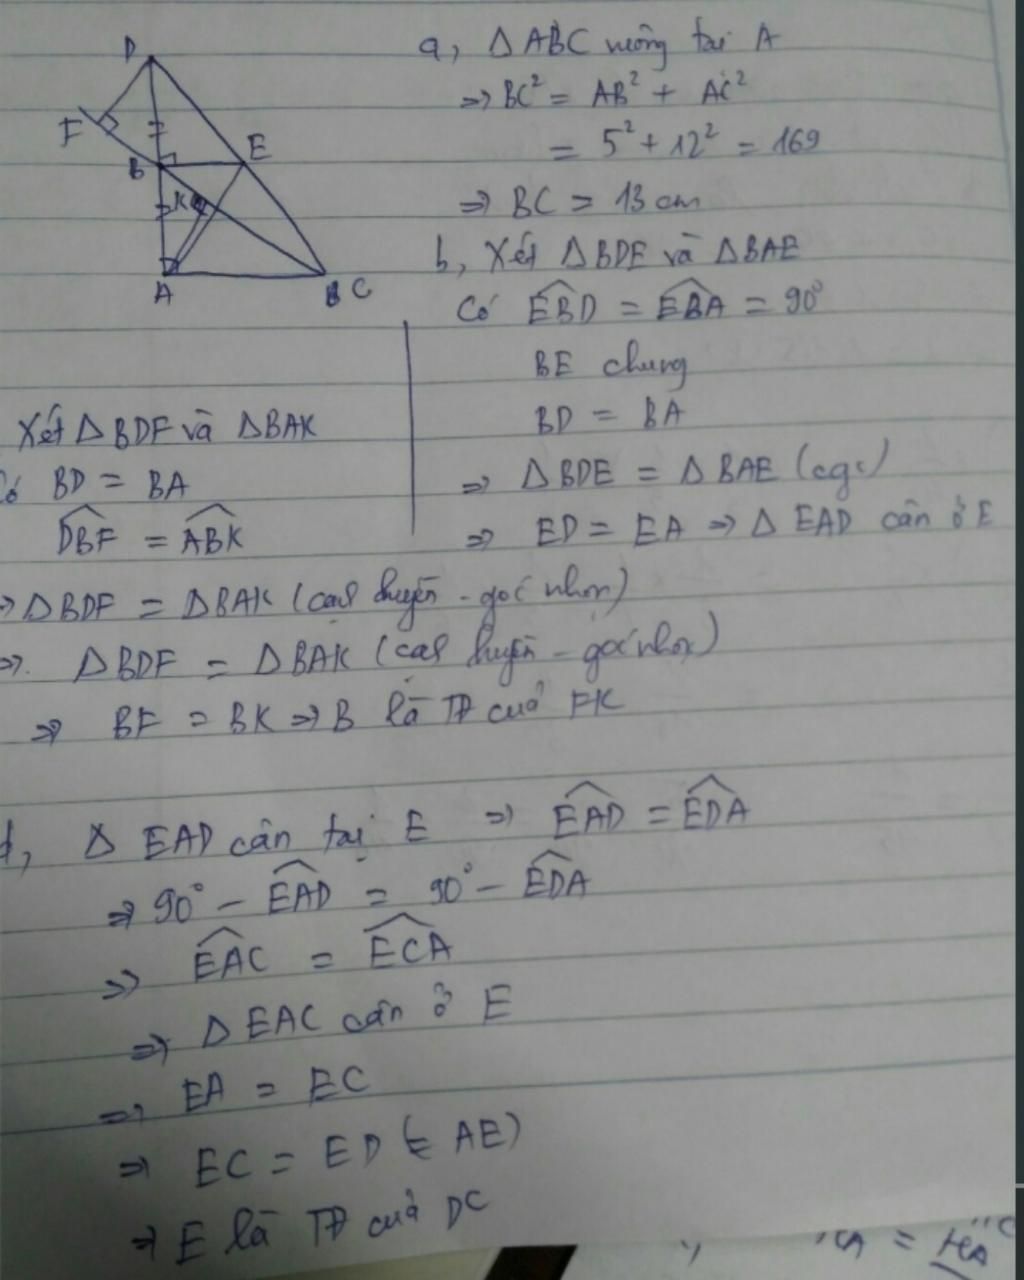 D
F
B
E
K
A
C
a, Δ ABC vuông tại A
=> BC² = AB² + AC²
= 5² + 12² = 169
=> BC = 13 cm
b, Xét Δ BDE và Δ BAE
Có EBD = EBA = 90°
BE chung
BD = BA
=> Δ BDE = Δ BAE (cgc)
=> ED = EA => Δ EAD cân ở E
Xét Δ BDF và Δ BAK
Có BD = BA
DBF = ABK
=> Δ BDF = Δ BAK (cạnh huyền - góc nhọn)
=> Δ BDF = Δ BAK (cạnh huyền - góc nhọn)
=> BF = BK => B là TĐ của FK
d, Δ EAD cân tại E => EAD = EDA
=> 90° - EAD = 90° - EDA
=> EAC = ECA
=> Δ EAC cân ở E
=> EA = EC
=> EC = ED (= AE)
=> E là TĐ của DC